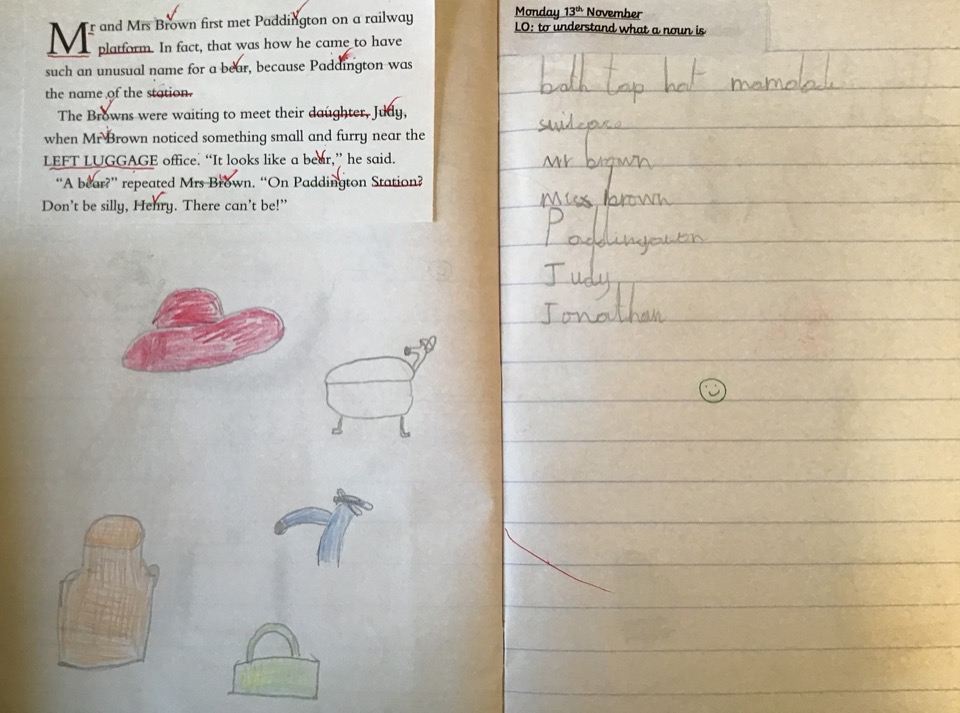 Mr and Mrs Brown first met Paddington on a railway
platform. In fact, that was how he came to have
such an unusual name for a bear, because Paddington was
the name of the station.
The Browns were waiting to meet their daughter, Judy,
when Mr Brown noticed something small and furry near the
LEFT LUGGAGE office. “It looks like a bear,” he said.
“A bear?” repeated Mrs Brown. “On Paddington Station?
Don't be silly, Henry. There can't be!”
Monday 13th November
LO: to understand what a noun is
bath tap hat mamolade
Mr brown
Miss brown
Judy
Jonathan